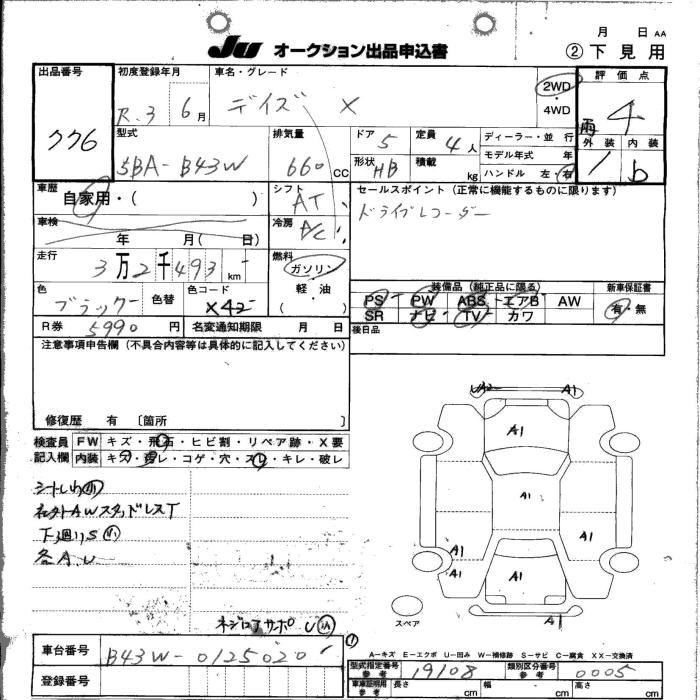 月 日 AA
JU オークション出品申込書 ②下見用
出品番号 初度登録年月 車名・グレード 評価点
776 R.3 6月 デイズ X 2WD・4WD 4
型式 排気量 ドア 5 定員 4人 ディーラー・並行 外装 内装
5BA-B43W 660CC 形状 HB 積載 kg モデル年式 年 1 b
ハンドル 左・右
車歴 自家用・( ) シフト AT セールスポイント (正常に機能するものに限ります)
車検 年 月( 日) 冷房 A/C ドライブレコーダー
走行 3万2千493km 燃料 ガソリン
軽・油
( )
装備品 (純正品に限る) 新車保証書
色 ブラック 色替 色コード X42 PS PW ABS エアB AW 有・無
SR ナビ TV カワ
R券 5990円 名変通知期限 月 日 後日品
注意事項申告欄 (不具合内容等は具体的に記入してください)
修復歴 有 〔箇所 〕
検査員 FW キズ・飛石・ヒビ割・リペア跡・X要
記入欄 内装 キズ・ヨゴレ・コゲ・穴・スレ・キレ・破レ
シートしわ小
社外AWスタッドレスT
下廻りS小
各A.U
U小
A1
A1
A1
A1
A1
A1
A1
A1
A1
スペア
A-キズ E-エクボ U-凹み W-補修跡 S-サビ C-腐食 XX-交換済
車台番号 B43W-0125020 型式指定番号 参考 19108 類別区分番号 参考 0005
登録番号 車庫証明用 参考 長さ cm 幅 cm 高さ cm